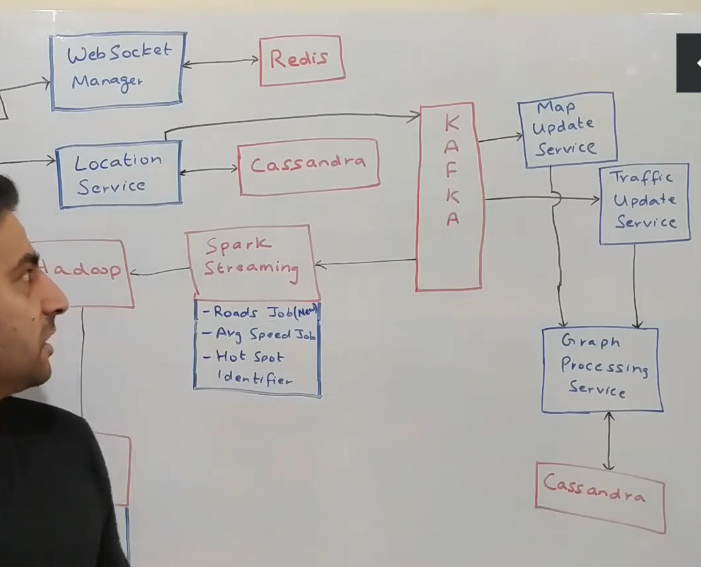 WebSocket
Manager
Redis
Location
Service
Cassandra
K
A
F
K
A
Map
Update
Service
Traffic
Update
Service
Spark
Streaming
- Roads Job(New)
- Avg Speed Job
- Hot Spot
Identifier
Hadoop
Graph
Processing
Service
Cassandra